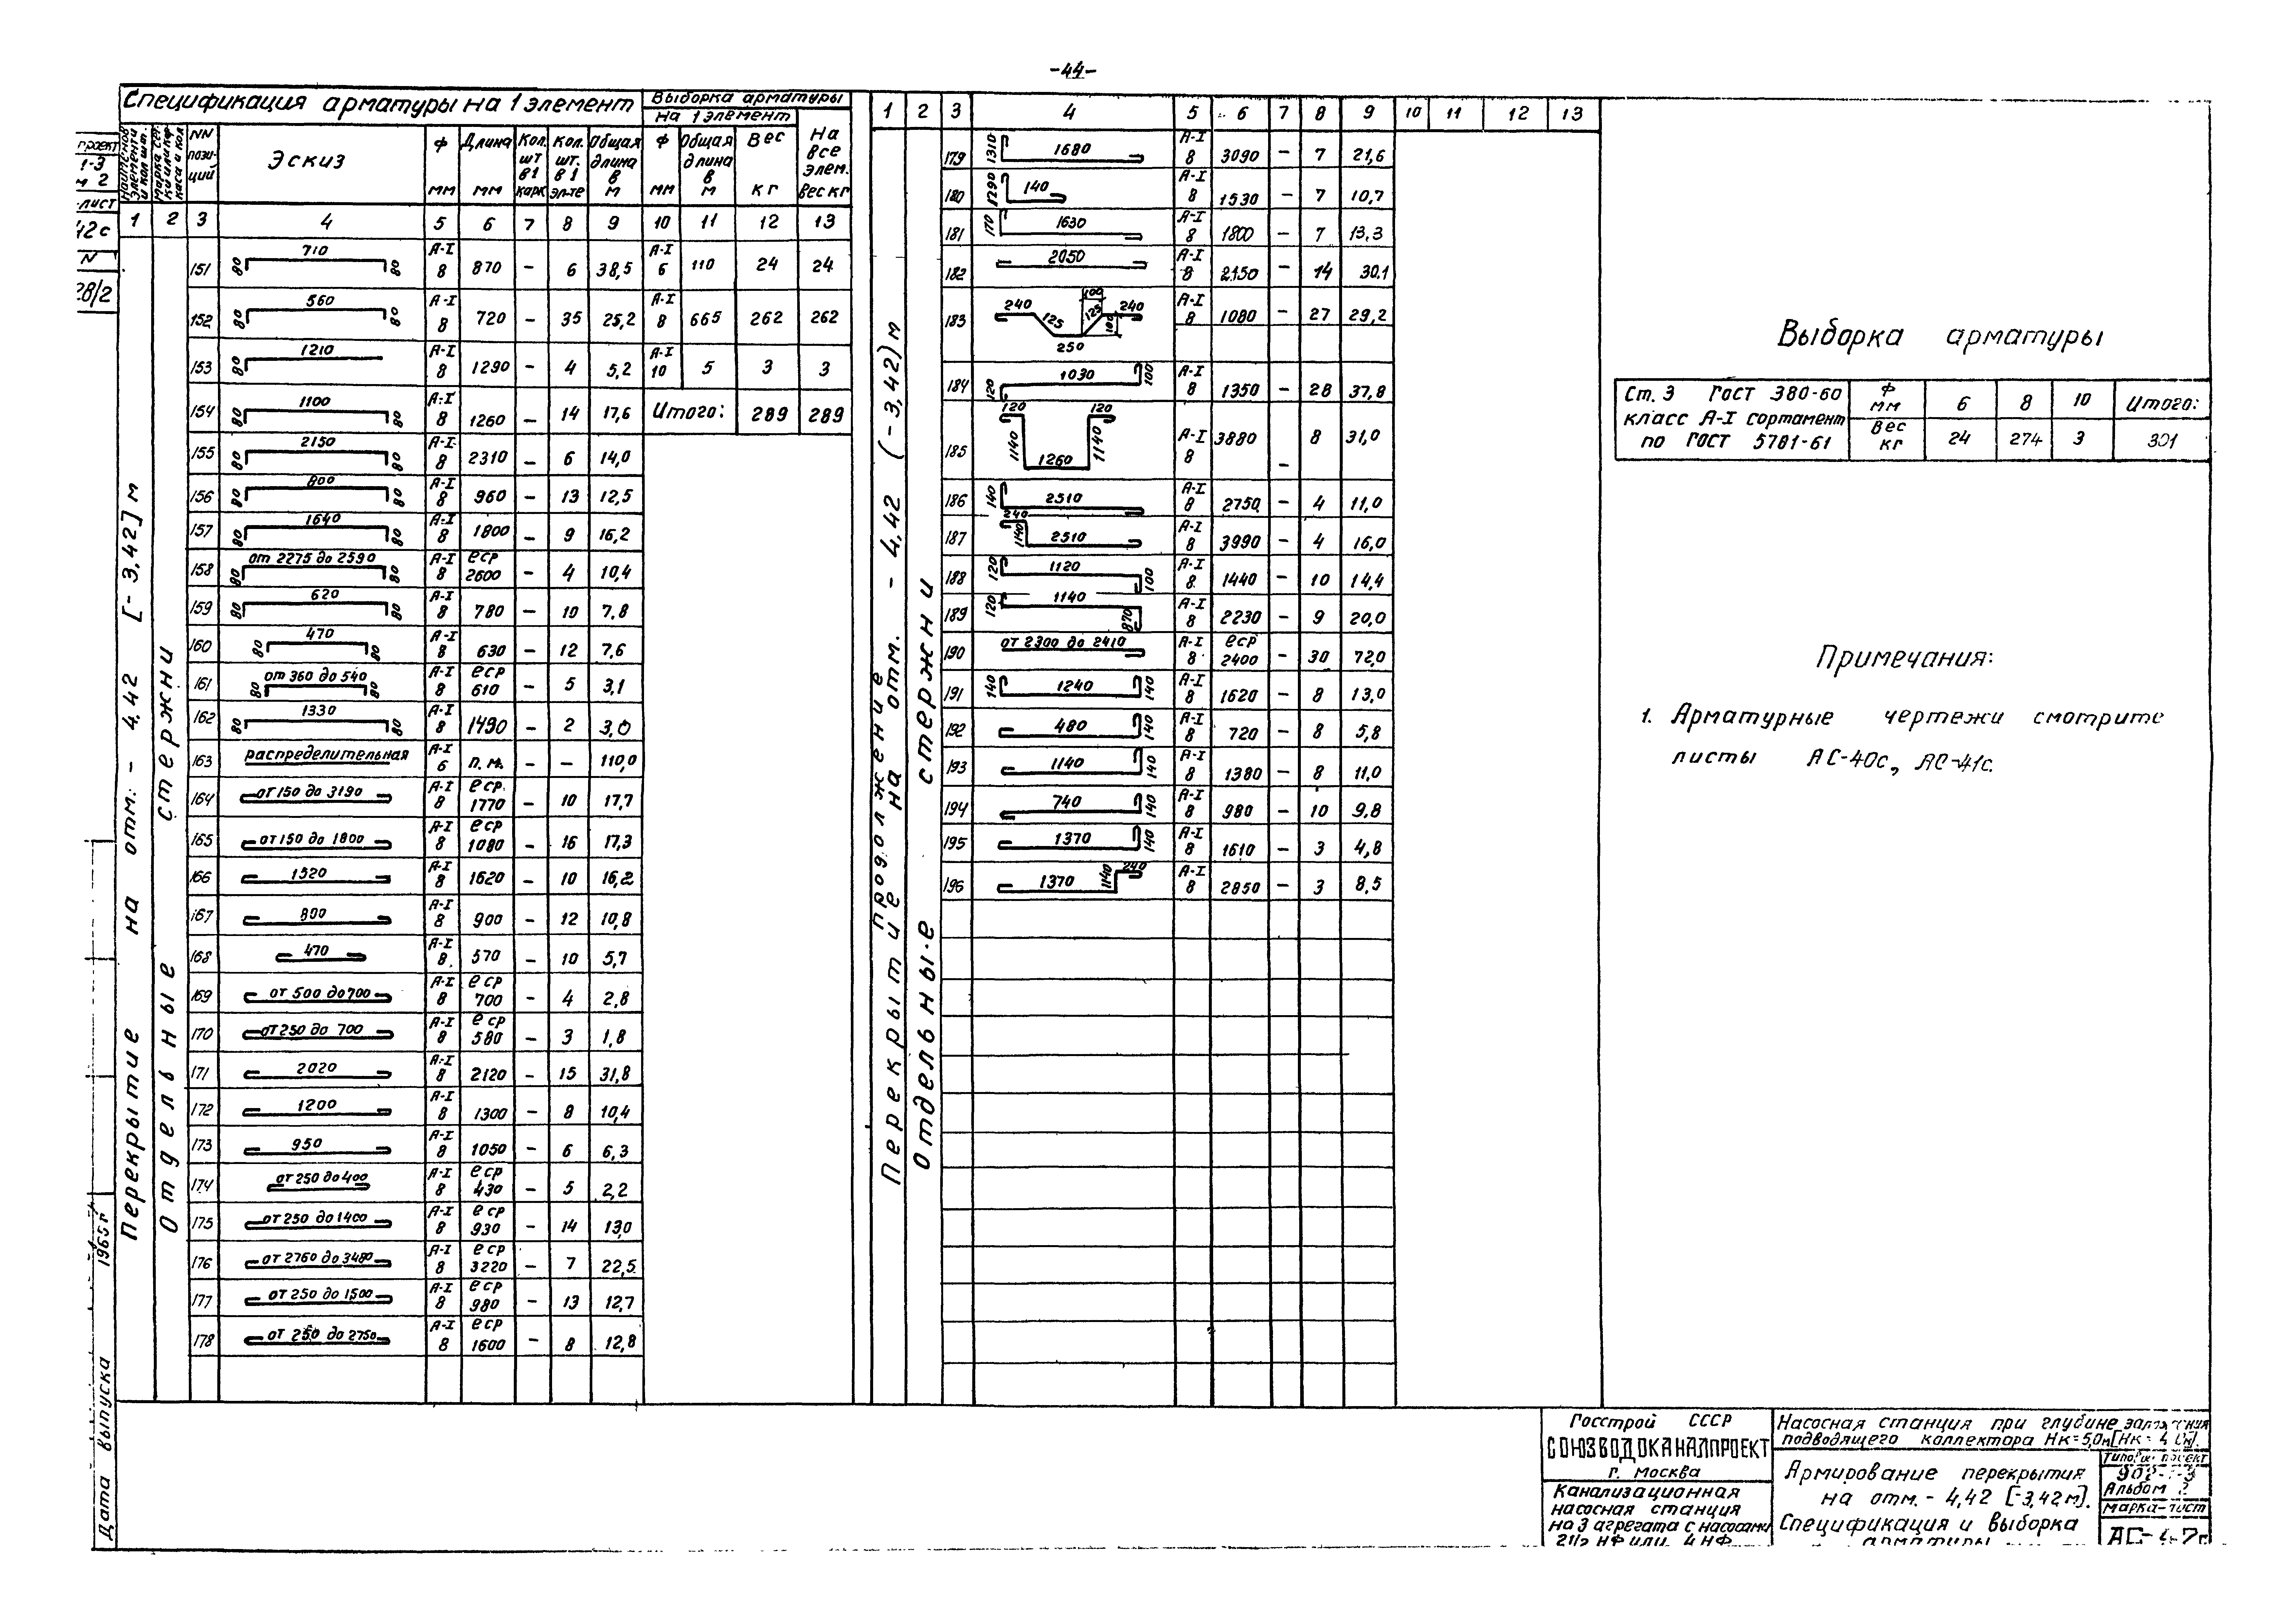 -44-
Спецификация арматуры на 1 элемент
Выборка арматуры
на 1 элемент
NN позиций | Эскиз | Ф мм | Длина мм | Кол. шт в 1 карк | Кол. шт. в 1 эл-те | Общая длина в м | Ф мм | Общая длина в м | Вес кг | На все элем. вес кг
1 2 3 4 5 6 7 8 9 10 11 12 13
Перекрытие на отм. - 4,42 [- 3,42] м
Отдельные стержни
151 80 710 80 А-I 8 870 – 6 38,5 А-I 6 110 24 24
152 80 560 80 А-I 8 720 – 35 25,2 А-I 8 665 262 262
153 80 1210 А-I 8 1290 – 4 5,2 А-I 10 5 3 3
154 80 1100 80 А-I 8 1260 – 14 17,6 Итого: 289 289
155 80 2150 80 А-I 8 2310 – 6 14,0
156 80 800 80 А-I 8 960 – 13 12,5
157 80 1640 80 А-I 8 1800 – 9 16,2
158 80 от 2275 до 2590 80 А-I 8 ℓср 2600 – 4 10,4
159 80 620 80 А-I 8 780 – 10 7,8
160 80 470 80 А-I 8 630 – 12 7,6
161 80 от 360 до 540 80 А-I 8 ℓср 610 – 5 3,1
162 80 1330 80 А-I 8 1490 – 2 3,0
163 распределительная А-I 6 п.м. – – 110,0
164 от 150 до 3190 А-I 8 ℓср. 1770 – 10 17,7
165 от 150 до 1800 А-I 8 ℓср 1080 – 16 17,3
166 1520 А-I 8 1620 – 10 16,2
167 800 А-I 8 900 – 12 10,8
168 470 А-I 8 570 – 10 5,7
169 от 500 до 700 А-I 8 ℓср 700 – 4 2,8
170 от 250 до 700 А-I 8 ℓср 580 – 3 1,8
171 2020 А-I 8 2120 – 15 31,8
172 1200 А-I 8 1300 – 8 10,4
173 950 А-I 8 1050 – 6 6,3
174 от 250 до 400 А-I 8 ℓср 430 – 5 2,2
175 от 250 до 1400 А-I 8 ℓср 930 – 14 13,0
176 от 2760 до 3480 А-I 8 ℓср 3220 – 7 22,5
177 от 250 до 1500 А-I 8 ℓср 980 – 13 12,7
178 от 250 до 2750 А-I 8 ℓср 1600 – 8 12,8
1 2 3 4 5 6 7 8 9 10 11 12 13
продолжение
Перекрытие на отм. - 4,42 (-3,42) м
Отдельные стержни
179 1310 1680 А-I 8 3090 – 7 21,6
180 1290 140 А-I 8 1530 – 7 10,7
181 170 1630 А-I 8 1800 – 7 13,3
182 2050 А-I 8 2150 – 14 30.1
183 240 125 250 125 100 100 240 А-I 8 1080 – 27 29,2
184 120 1030 100 А-I 8 1350 – 28 37,8
185 120 1140 1260 1140 120 А-I 8 3880 – 8 31,0
186 140 2510 А-I 8 2750 – 4 11,0
187 240 1140 2510 А-I 8 3990 – 4 16,0
188 120 1120 100 А-I 8 1440 – 10 14,4
189 120 1140 870 А-I 8 2230 – 9 20,0
190 от 2300 до 2410 А-I 8 ℓср 2400 – 30 72,0
191 140 1240 140 А-I 8 1620 – 8 13,0
192 480 140 А-I 8 720 – 8 5,8
193 1140 140 А-I 8 1380 – 8 11,0
194 740 140 А-I 8 980 – 10 9,8
195 1370 140 А-I 8 1610 – 3 4,8
196 1370 1140 240 А-I 8 2850 – 3 8,5
Выборка арматуры
Ст. 3 ГОСТ 380-60 класс А-I сортамент по ГОСТ 5781-61
Ф мм 6 8 10 Итого:
Вес кг 24 274 3 301
Примечания:
1. Арматурные чертежи смотрите
листы АС-40с, АС-41с.
проект
1-3
лист
42с
N
28/2
Дата выпуска 1965г
Госстрой СССР
СОЮЗВОДОКАНАЛПРОЕКТ
г. Москва
Канализационная
насосная станция
на 3 агрегата с насосами
2½ НФ или 4НФ
Насосная станция при глубине
подводящего коллектора Нк=5,0м
Армирование перекрытия
на отм.- 4,42 [-3,42м].
Спецификация и выборка
арматуры
Альбом
марка-лист